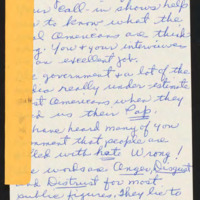 "Call-in shows" help
to know what the
Americans are think
ing. You & your interviewers
an excellent job.
government & a lot of the
dia really under estimate
st Americans when they
d us their Pap.
have heard many of you
mment that people are
led with hate. Wrong!
words are Anger, Disgust
Distrust for most
public figures. They lie to